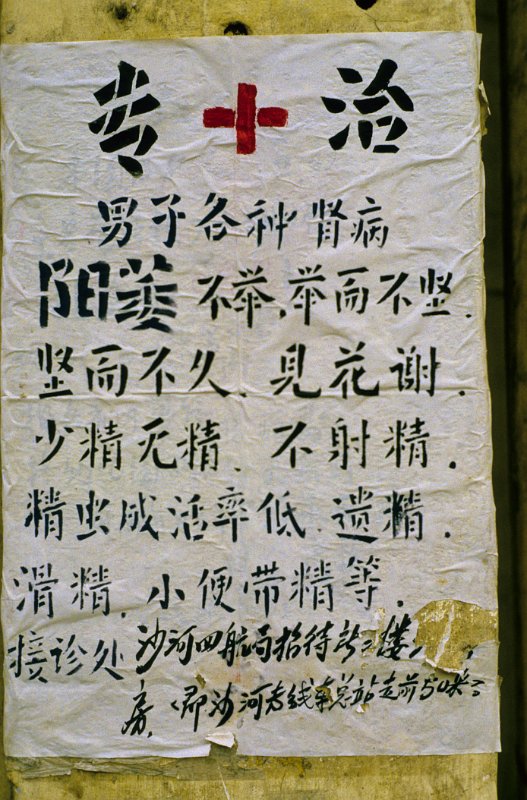 专 治
男子各种肾病
阳萎不举,举而不坚.
坚而不久.见花谢.
少精无精.不射精.
精虫成活率低.遗精.
滑精.小便带精等.
接诊处 沙河四航局招待所三楼
房.(即沙河专线车总站走前